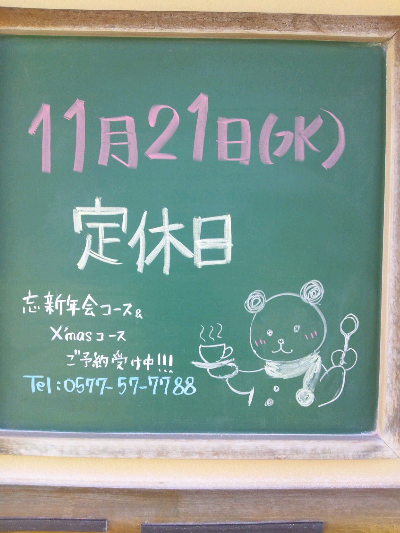 11月21日(水)
定休日
忘新年会コース&
X'masコース
ご予約受け中!!!
Tel:0577-57-7788